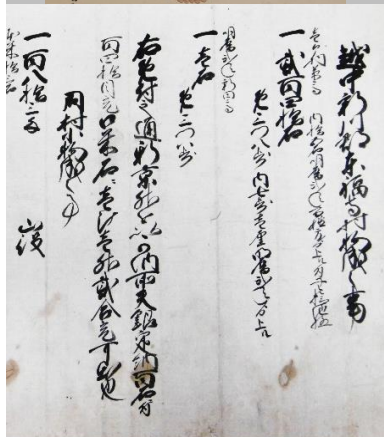 越中新川郡東福寺村物成之事
壱ヶ村草高 内拾石明暦弐年百姓方ゟ上ルに付無検地極
一 弐百四拾石
免三ツ八歩 内七歩壱厘明暦弐年ゟ上ル
明暦弐年新田高
一 壱石
免三ツ八歩
右免付之通新京升を以可納所夫銀定納百石ニ付
百四拾目宛口米石ニ壱斗壱升弐合宛可出也
同村小物成之事
一 百八拾三匁 山役